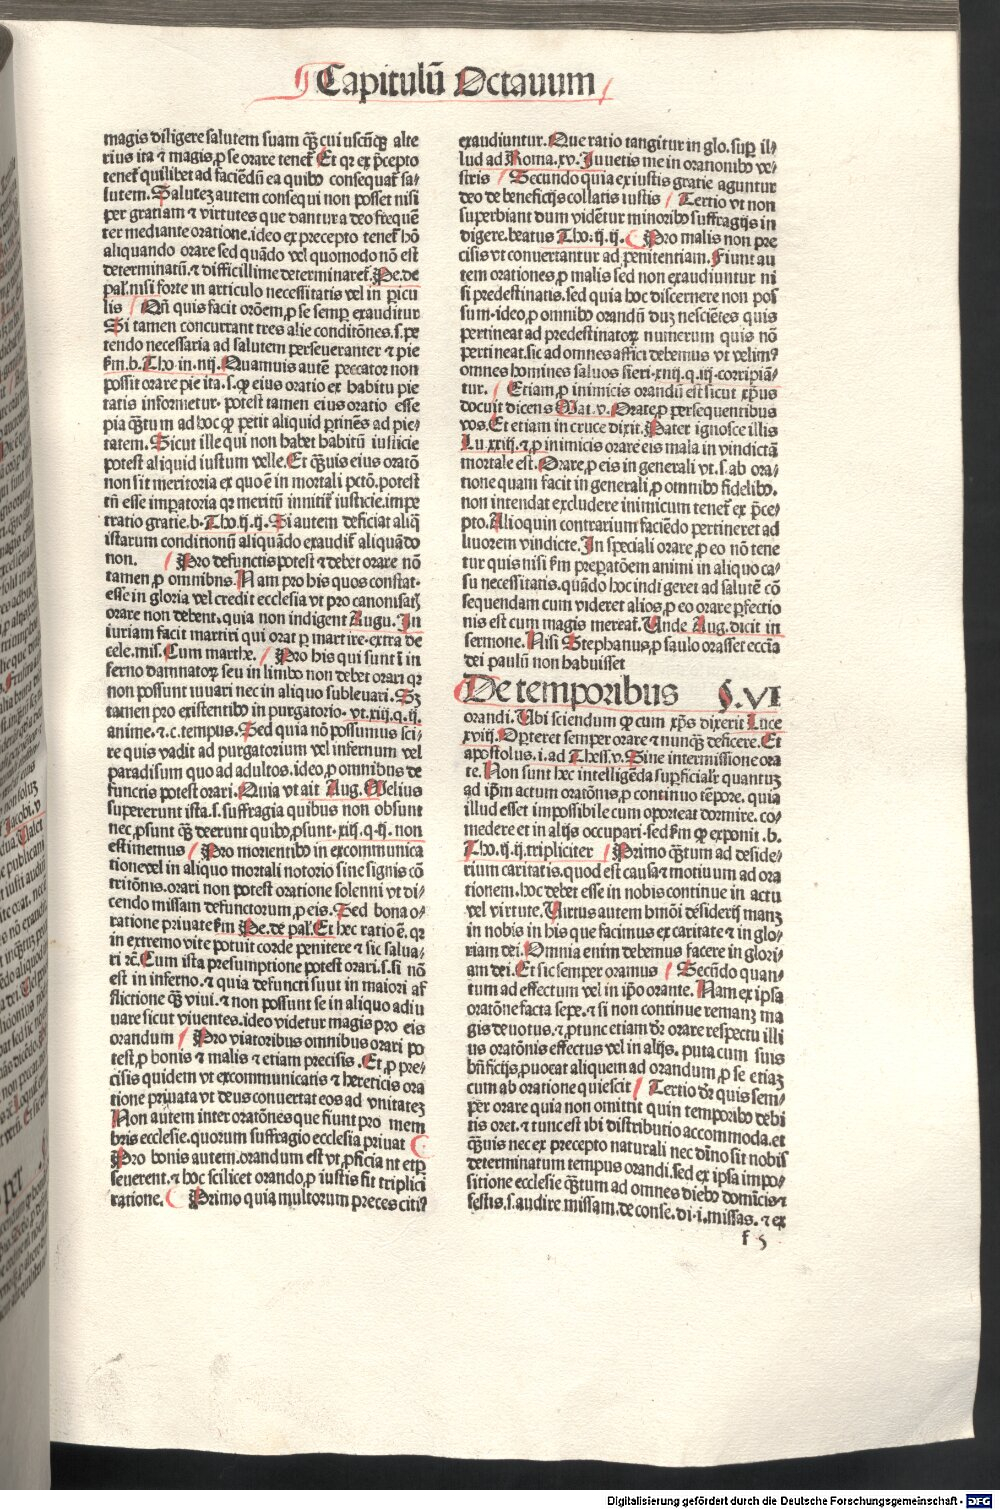 Capitulū Octauum
magis diligere salutem suam qȝ cuiuscūqȝ alte
rius ita ⁊ magis ꝓ se orare teneť Et qꝛ ex p̄cepto
teneť quilibet ad faciēdū ea quibꝰ consequať sa⸗
lutem. Salutez autem consequi non posset nisi
per gratiam ⁊ virtutes que dantur a deo frequē
ter mediante oratione. ideo ex precepto teneť hō
aliquando orare sed quādo vel quomodo nō est
determinatū. ⁊ difficillime determinareť. Pe. de
pal. nisi forte in articulo necessitatis vel in picu
lis Qn̄ quis facit orōem ꝓ se semꝑ exauditur
Si tamen concurrant tres alie conditōnes. s. pe
tendo necessaria ad salutem perseueranter ⁊ pie
ẜm. b. Tho. in. iiij. Quamuis autē peccator non
possit orare pie ita. s. ꝙ eius oratio ex habitu pie
tatis informetur. potest tamen eius oratio esse
pia qȝtum ad hoc ꝙ petit aliquid ꝑtinēs ad pie⸗
tatem. Sicut ille qui non habet habitū iusticie
potest aliquid iustum velle. Et qȝuis eius oratō
non sit meritoria ex quo ē in mortali pctō. potest
tn̄ esse impatoria qꝛ meritū innitiť iusticie. impe
tratio gratie. b. Tho. ij. ij. Si autem deficiat aliq̄
istarum conditionū aliquādo exaudiť aliquādo
non. Pro defunctis potest ⁊ debet orare nō
tamen ꝓ omnibus. Nam pro his quos constat
esse in gloria vel credit ecclesia vt pro canonisatꝭ
orare non debent. quia non indigent Augu. In
iuriam facit martiri qui orat ꝑ martire. extra de
cele. mis. Cum marthe. Pro his qui sunt in in
ferno damnatoꝝ seu in limbo non debet orari qꝛ
non possunt iuuari nec in aliquo subleuari. Sȝ
tamen pro existentibꝰ in purgatorio. vt. xiij. q. ij.
anime. ⁊. c. tempus. Sed quia nō possumus sci⸗
re quis vadit ad purgatorium vel infernum vel
paradisum quo ad adultos. ideo ꝓ omnibus de
functis potest orari. Quia vt ait Aug. Melius
supererunt ista. s. suffragia quibus non obsunt
nec ꝓsunt qȝ deerunt quibꝰ ꝓsunt. xiij. q. ij. non
estimemus Pro morientibꝰ in excommunica
tione vel in aliquo mortali notorio sine signis cō
tritōnis. orari non potest oratione solenni vt di⸗
cendo missam defunctorum ꝓ eis. Sed bona o⸗
ratione priuate ẜm Pe. de pal. Et hec ratio ē. qꝛ
in extremo vite potuit corde penitere ⁊ sic salua⸗
ri ⁊c. Cum ista presumptione potest orari. s. si nō
est in inferno. ⁊ quia defuncti sunt in maiori af
flictione qȝ viui. ⁊ non possunt se in aliquo adiu
uare sicut viuentes. ideo videtur magis pro eis
orandum Pro viatoribus omnibus orari po
test ꝓ bonis ⁊ malis ⁊ etiam precisis. Et ꝓ pre⸗
cisis quidem vt excommunicatis ⁊ hereticis ora
tione priuata vt deus conuertat eos ad vnitatez
Non autem inter oratōnes que fiunt pro mem
bris ecclesie. quorum suffragio ecclesia priuat
Pro bonis autem. orandum est vt ꝓficiant etꝑ
seuerent. ⁊ hoc scilicet orando ꝓ iustis fit triplici
ratione. Primo quia multorum preces citiꝰ
exaudiuntur. Que ratio tangitur in glo. suꝑ il⸗
lud ad Roma. xv. Iuuetis me in orationibꝰ ve⸗
stris Secundo quia ex iustis gratie aguntur
deo de beneficijs collatis iustis Tertio vt non
superbiant dum vidētur minoribꝰ suffragijs in
digere. beatus Tho. ij. ij. Pro malis non pre
cisis vt conuertantur ad penitentiam. Fiunt au
tem orationes ꝓ malis sed non exaudiuntur ni
si predestinatis. sed quia hoc discernere non pos
sum. ideo ꝓ omnibꝰ orandū duȝ nesciētes quis
pertineat ad predestinatoꝝ numerum quis nō
pertineat. sic ad omnes affici debemus vt velimꝰ
omnes homines saluos fieri. xxiij. q. iij. corripiā⸗
tur. Etiam ꝓ inimicis orandū est sicut xp̄us
docuit dicens Mat. v. Orate ꝓ persequentibus
vos. Et etiam in cruce dixit. Pater ignosce illis
Lu. xxiij. ⁊ ꝓ inimicis orare eis mala in vindictā
mortale est. Orare ꝓ eis in generali vt. s. ab ora⸗
tione quam facit in generali ꝓ omnibꝰ fidelibꝰ.
non intendat excludere inimicum teneť ex p̄ce⸗
pto. Alioquin contrarium faciēdo pertineret ad
liuorem vindicte. In speciali orare ꝓ eo nō tene
tur quis nisi ẜm prepatōem animi in aliquo ca⸗
su necessitatis. quādo hoc indigeret ad salutē cō
sequendam cum videret alios ꝓ eo orare ꝑfectio
nis est cum magis mereať. Unde Aug. dicit in
sermone. Nisi Stephanus ꝓ saulo orasset ecc̄ia
dei paulū non habuisset
De temporibus §. VI
orandi. Ubi sciendum ꝙ cum xp̄s dixerit Luce
xviij. Oꝑteret semper orare ⁊ nunqȝ deficere. Et
apostolus. i. ad Thess. v. Sine intermissione ora
te. Non sunt hec intelligēda superficialiť quantuȝ
ad ip̄m actum oratōnis ꝓ continuo tēpore. quia
illud esset impossibile cum oporteat dormire. co⸗
medere et in alijs occupari. sed ẜm ꝙ exponit. b.
Tho. ij. ij. tripliciter Primo qȝtum ad deside⸗
rium caritatis. quod est causa ⁊ motiuum ad ora
tionem. hoc debet esse in nobis continue in actu
vel virtute. Virtus autem hmōi desiderij manȝ
in nobis in his que facimus ex caritate ⁊ in glo⸗
riam dei. Omnia enim debemus facere in glori⸗
am dei. Et sic semper oramus Secūdo quan⸗
tum ad effectum vel in ip̄o orante. Nam ex ipsa
oratōne facta sepe. ⁊ si non continue remanȝ ma
gis deuotus. ⁊ ꝓ tunc etiam dr̄ orare respectu illi
us oratōnis effectus vel in alijs. puta cum suis
bn̄ficijs ꝓuocat aliquem ad orandum ꝓ se etiaȝ
cum ab oratione quiescit Tertio dr̄ quis sem⸗
per orare quia non omittit quin temporibꝰ debi
tis oret. ⁊ tunc est ibi distributio accommoda. et
qȝuis nec ex precepto naturali nec diuīno sit nobis
determinatum tempus orandi. sed ex ipsa impo⸗
sitione ecclesie qȝtum ad omnes diebꝰ domīcis ⁊
festis. s. audire missam. de conse. di. i. missas. ⁊ ex
f 5
Digitalisierung gefördert durch die Deutsche Forschungsgemeinschaft - DFG